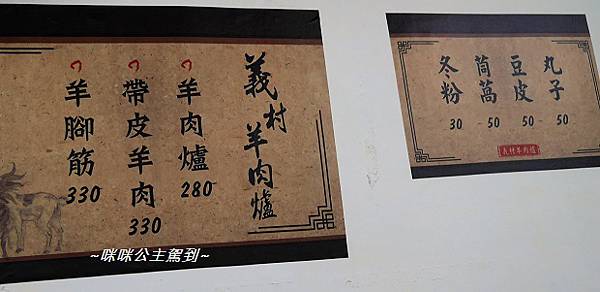 義村羊肉爐
羊肉爐
280
帶皮羊肉
330
羊腳筋
330
丸子
50
豆皮
50
茼蒿
50
冬粉
30
義村羊肉爐
~咪咪公主駕到~